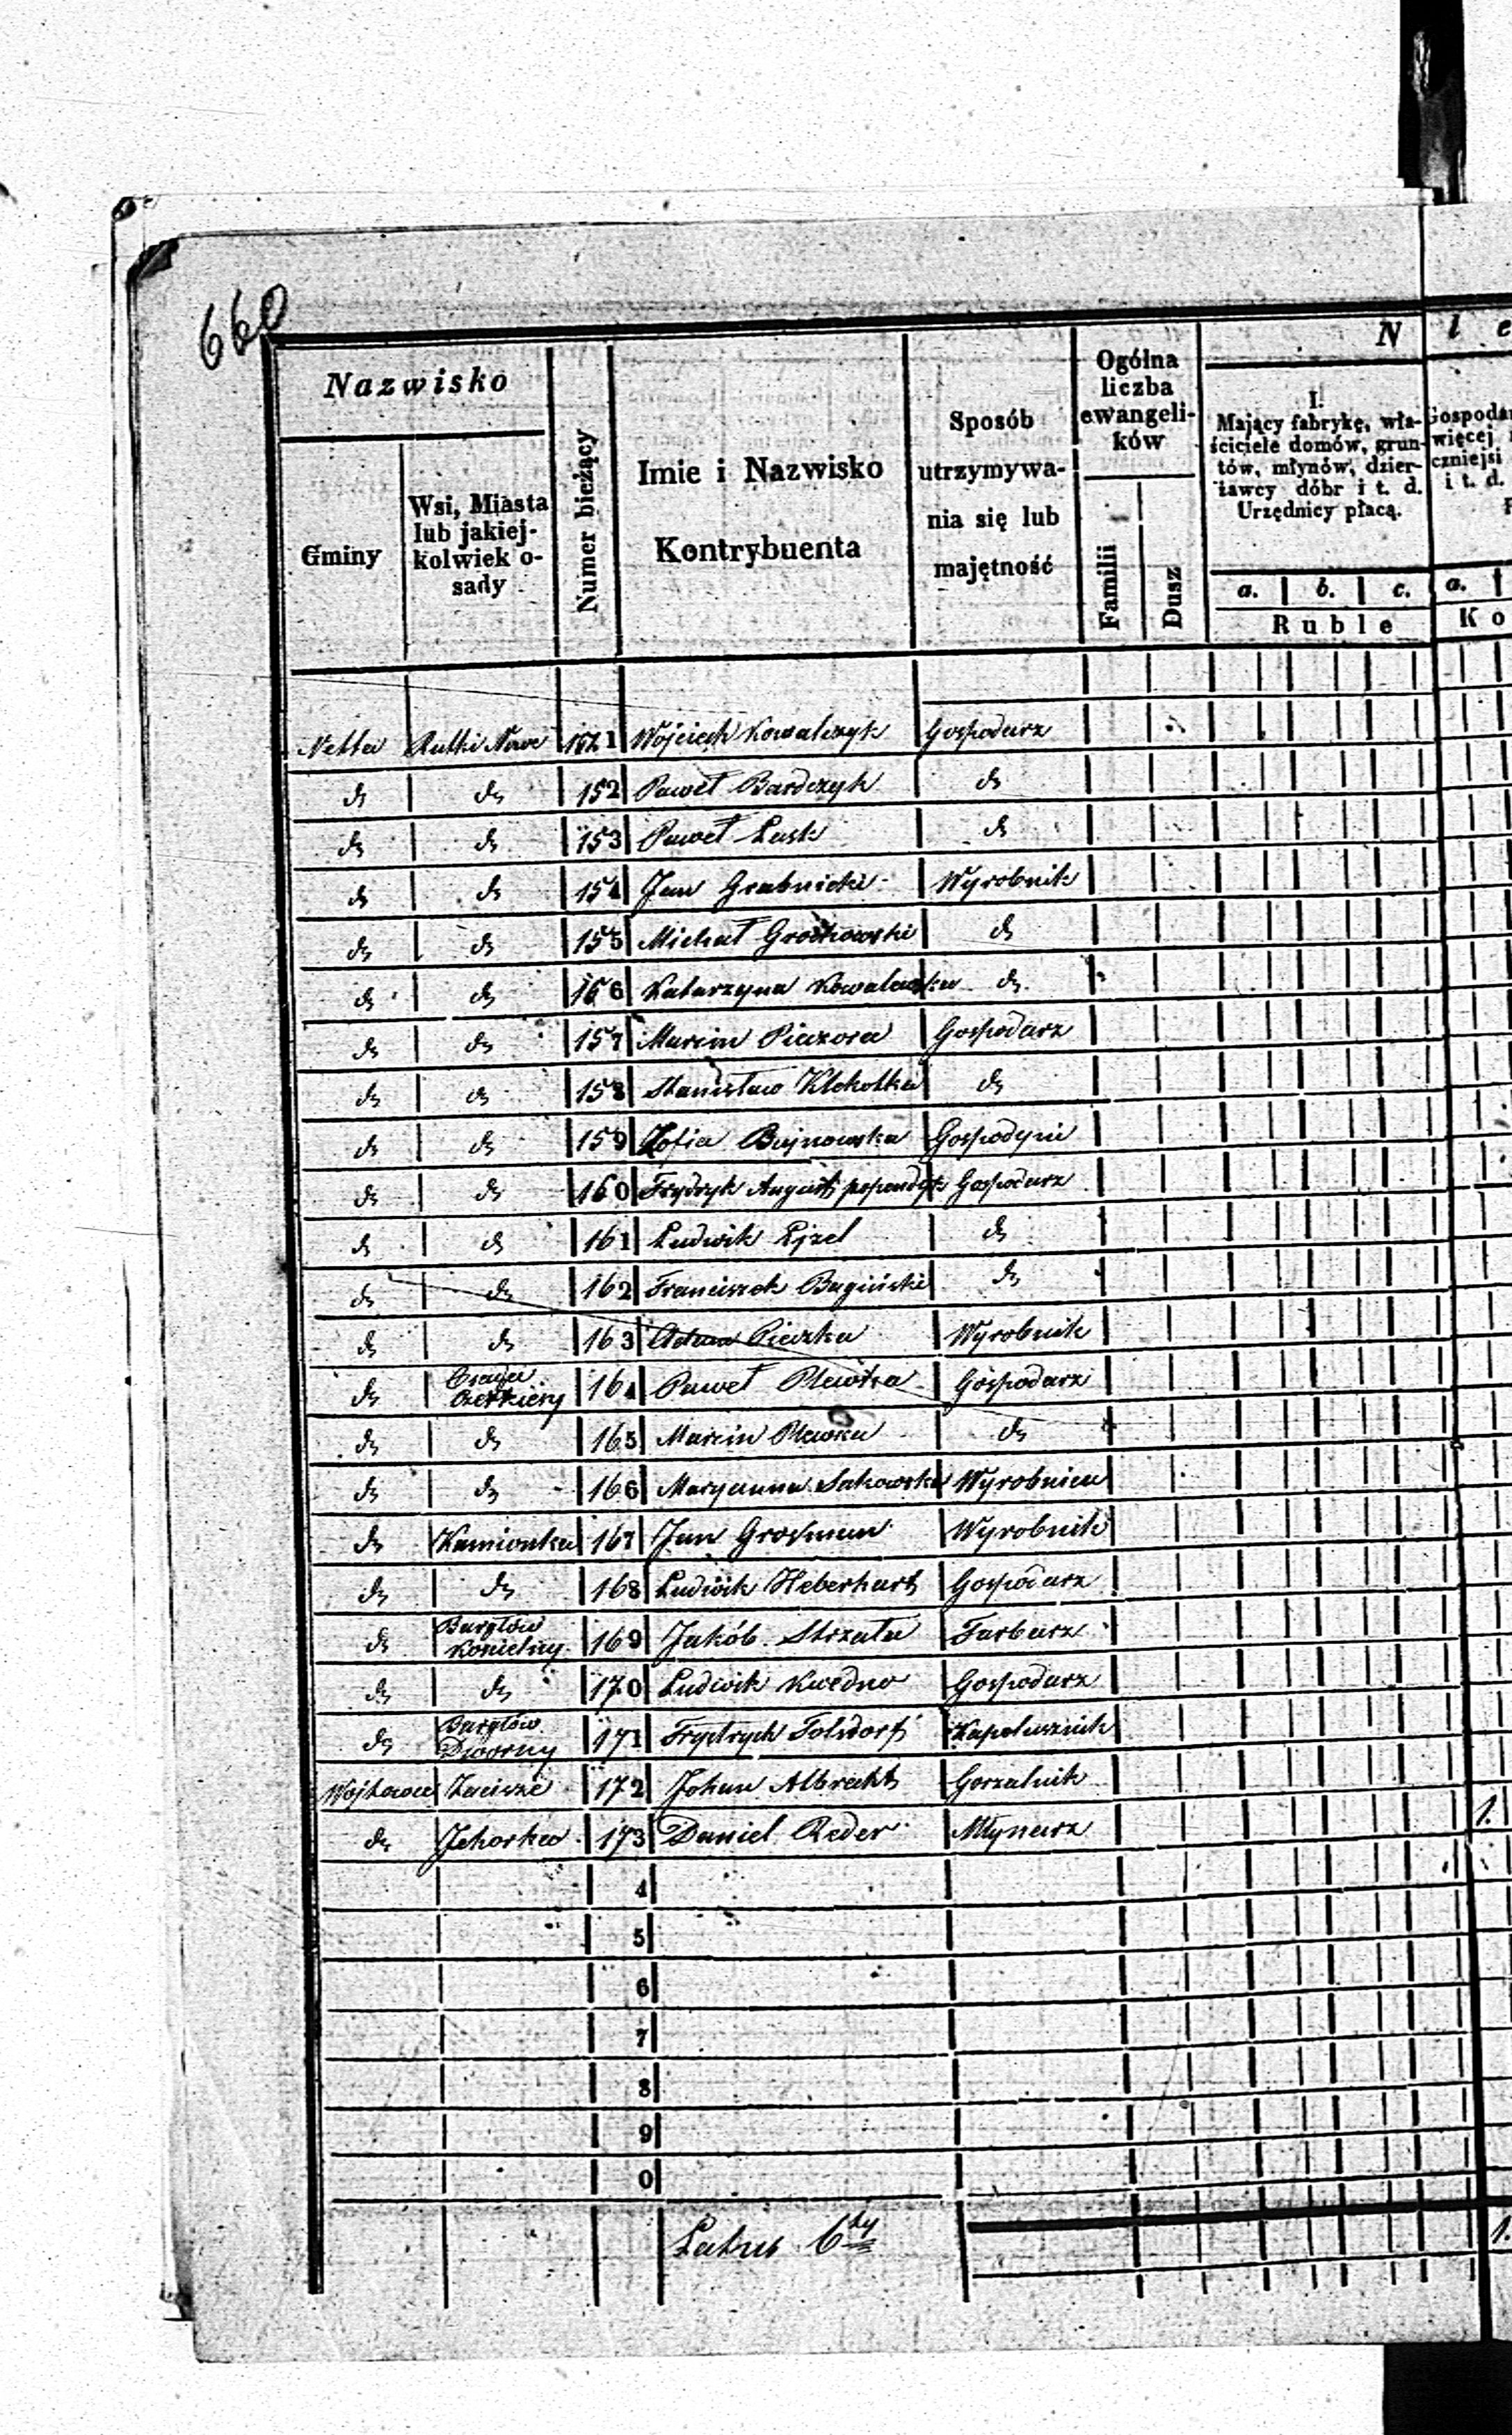 660
Nazwisko
Gminy
Wsi, Miasta
lub jakiej-
kolwiek o-
sady
Numer bieżący
Imie i Nazwisko
Kontrybuenta
Sposób
utrzymywa-
nia się lub
majętność
Ogólna
liczba
ewangeli-
ków
Familii
Dusz
N i e
I.
Mający fabrykę, wła-
ściciele domów, grun-
tów, młynów, dzier-
żawcy dóbr i t. d.
Urzędnicy płacą.
a. b. c.
Ruble
Gospodar
więcej
czniejsi
i t. d.
a.
Ko
Netta Rutki Nowe 151 Wojciech Kowalczyk Gospodarz
do do 152 Paweł Bardczyk do
do do 153 Paweł Lask do
do do 154 Jan Grabnicki Wyrobnik
do do 155 Michał do
do do 156 Katarzyna Kowalewska do
do do 157 Marcin Piazora Gospodarz
do do 158 Stanisław Klekotka do
do do 159 Zofia Bujnowska Gospodyni
do do 160 Frydryk August Gospodarz
do do 161 Ludwik Ejzel do
do do 162 Franciszek Bagiński do
do do 163 Adam Pieczka Wyrobnik
do 164 Paweł Plewka Gospodarz
do do 165 Marcin Plewka do
do do 166 Maryanna Sakowska Wyrobnica
do Kamionka 167 Jan Grosman Wyrobnik
do do 168 Ludwik Heberhart Gospodarz
do Bargłów
Koscielny 169 Jakób Strzała Farbarz
do do 170 Ludwik Kwedno Gospodarz
do Bargłów
Dworny 171 Frydrych Folsdorf Kapelusznik
Wojtowce Zacisze 172 Johan Albrecht Gorzalnik
do Jchorka 173 Daniel Reder Młynarz 1.
4
5
6
7
8
9
0
Latus 6ty 1.